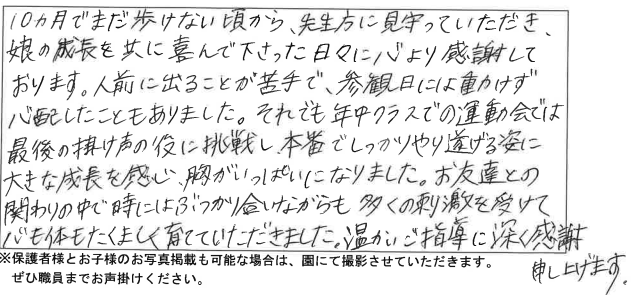 10ヵ月でまだ歩けない頃から、先生方に見守っていただき、
娘の成長を共に喜んで下さった日々に心より感謝して
おります。人前に出ることが苦手で、参観日には動かけず
心配したこともありました。それでも年中クラスでの運動会では
最後の掛け声の役に挑戦し、本番でしっかりやり遂げる姿に
大きな成長を感じ、胸がいっぱいになりました。お友達との
関わりの中で時にはぶつかり合いながらも多くの刺激を受けて
心も体もたくましく育てていただきました。温かいご指導に深く感謝
申し上げます。
※保護者様とお子様のお写真掲載も可能な場合は、園にて撮影させていただきます。
ぜひ職員までお声掛けください。